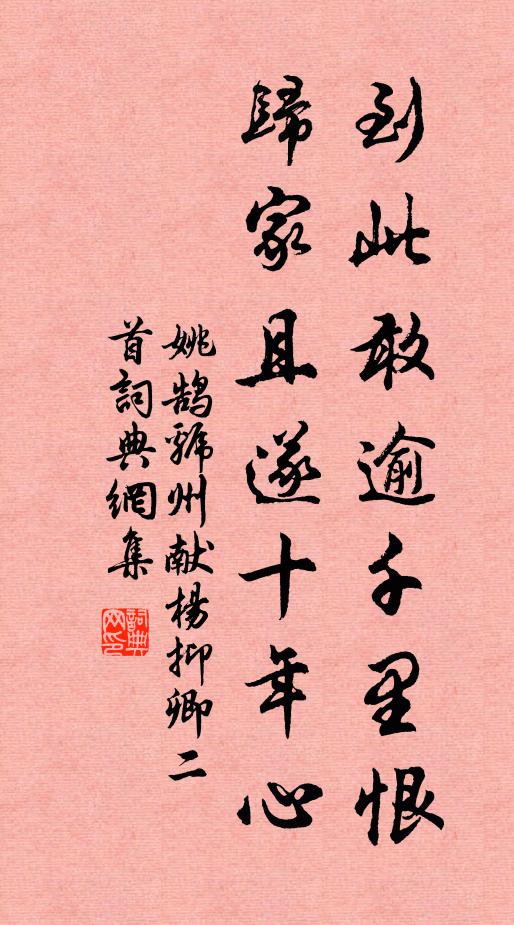 到此敢逾千里恨
歸家且遂十年心
姚鵠虢州献楊抑卿二
首詞典網集
詞典网印